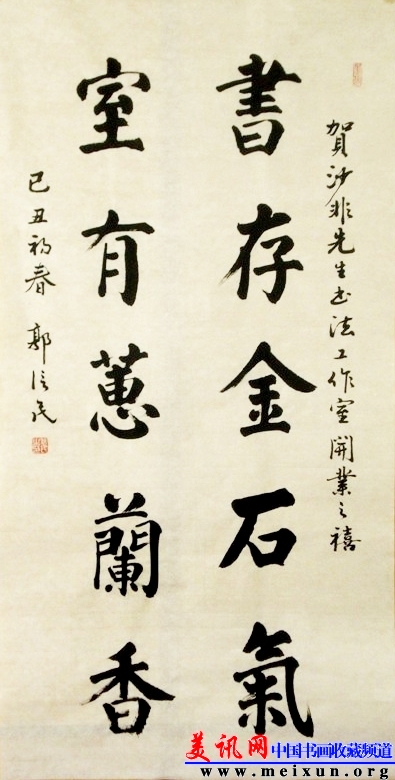 賀沙非先生书法工作室開業之禧
書存金石氣
室有蕙蘭香
己丑初春 郭信民
美讯网 中国书画收藏频道
www.meixun.org